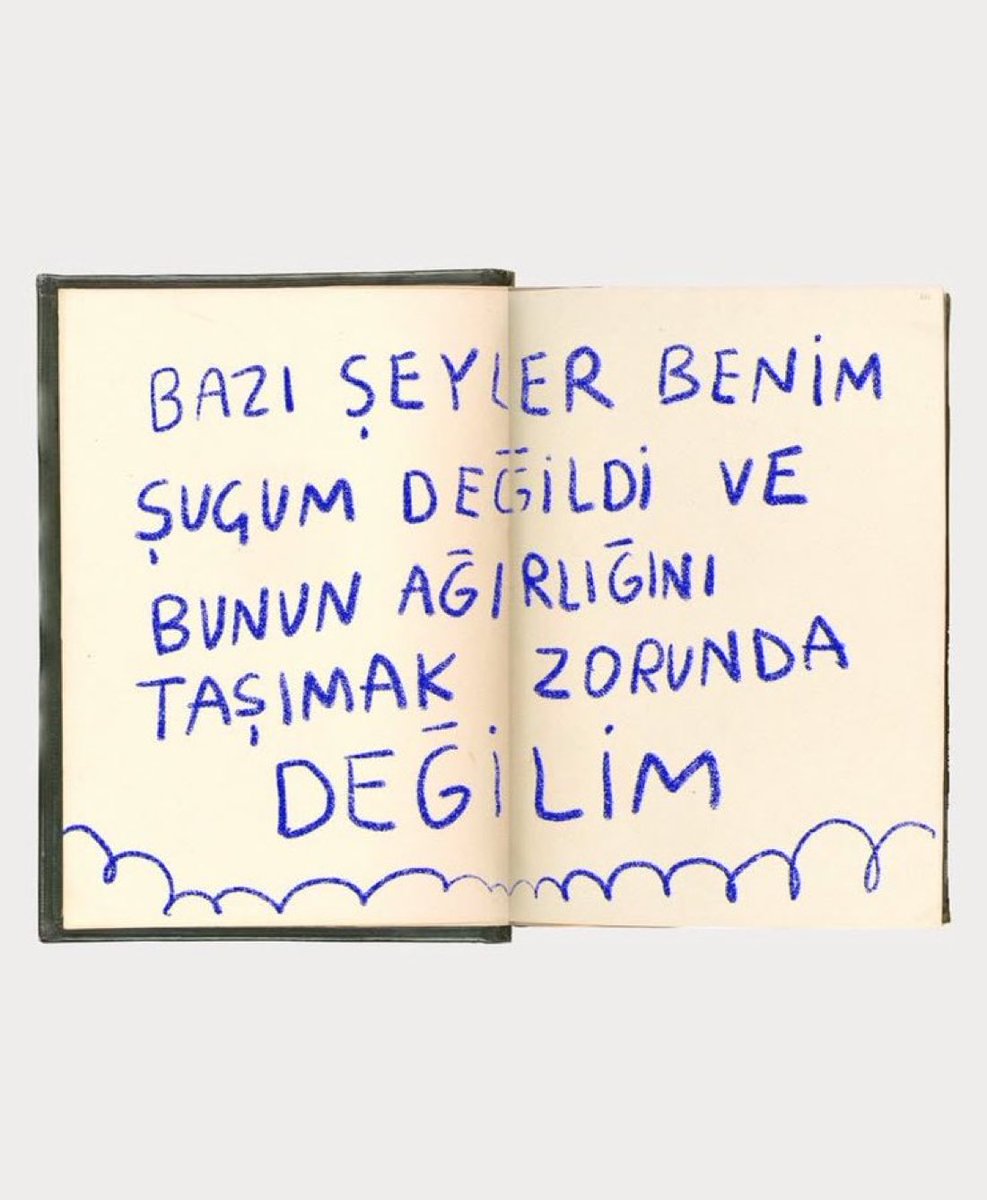 BAZI ŞEYLER BENİM
ŞUÇUM DEĞİLDİ VE
BUNUN AĞIRLIĞINI
TAŞIMAK ZORUNDA
DEĞİLİM